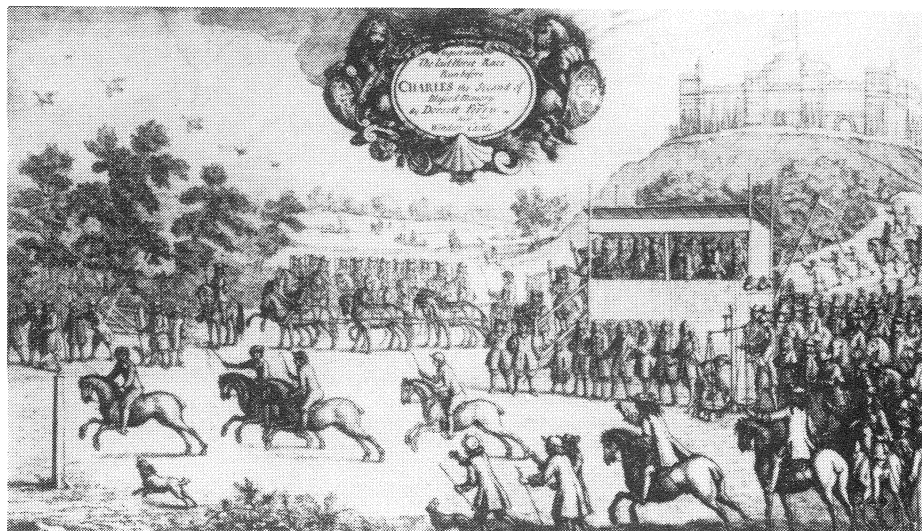 The last Horse Race
Run before
CHARLES the Second of
Blessed Memory
by Dorsett Ferry
Windsor Castle